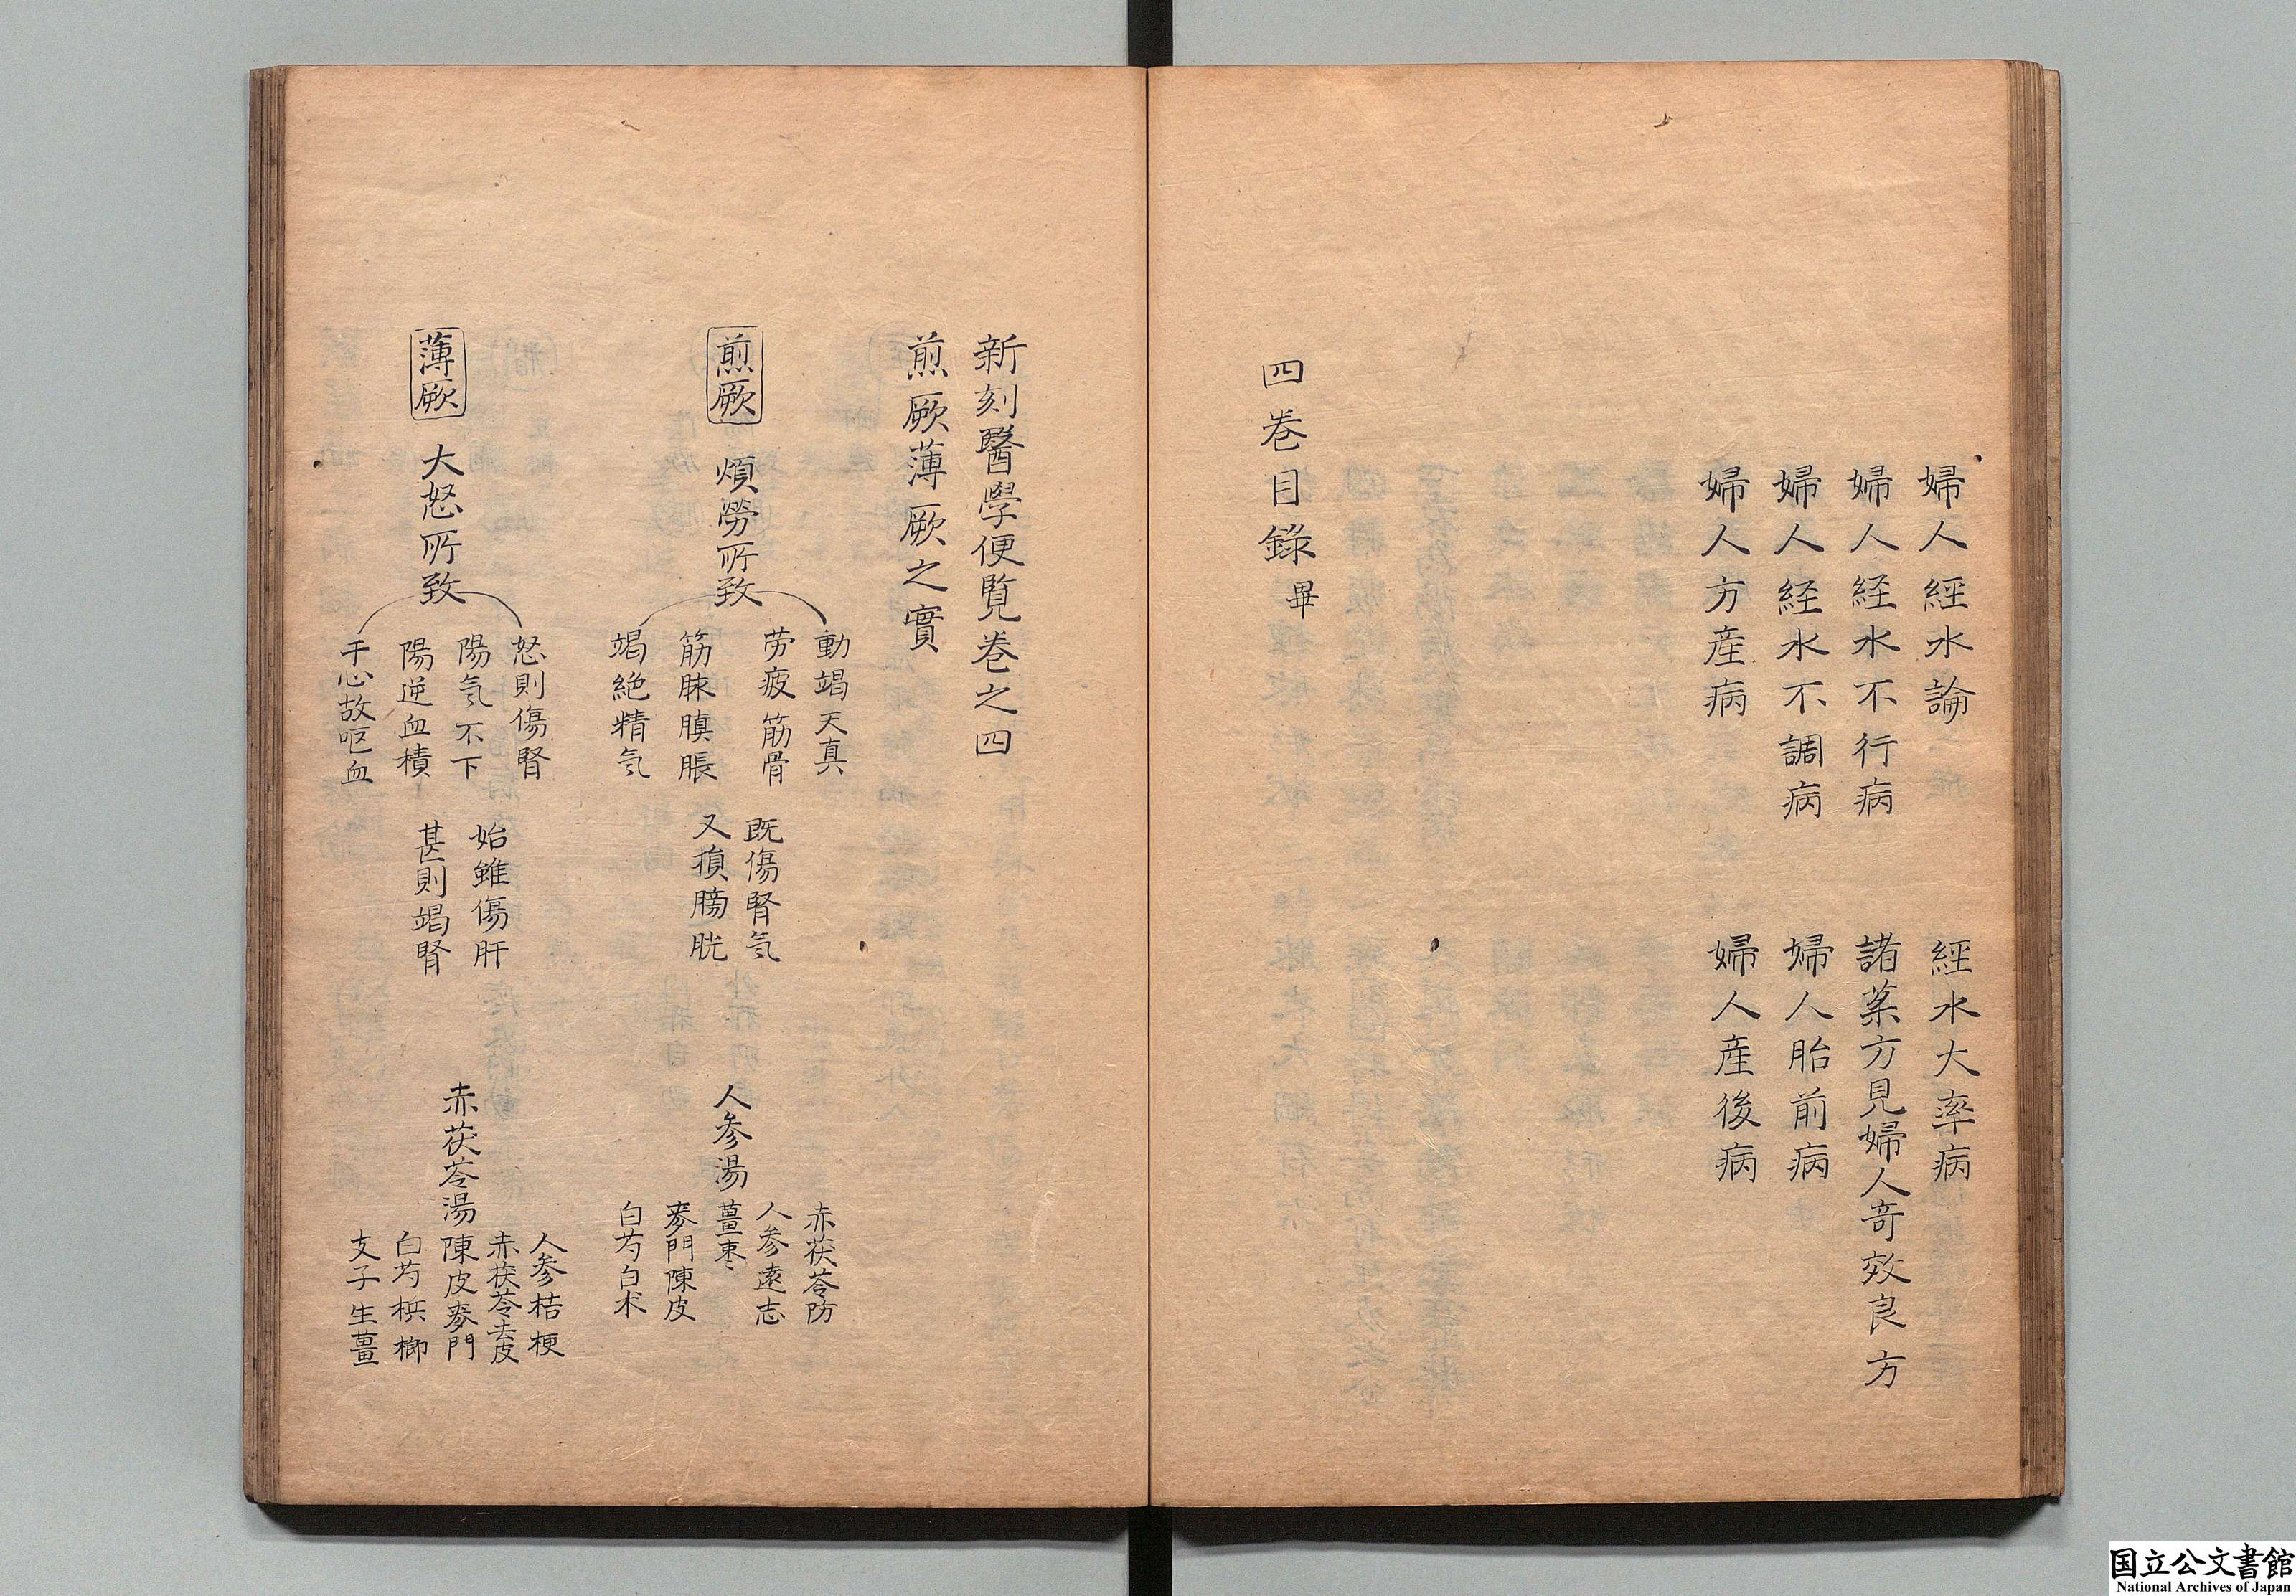 婦人經水論
經水大率病
婦人経水不行病
諸薬方見婦人竒效良方
婦人経水不調病
婦人胎前病
婦人方産病
婦人産後病
四巻目錄畢
新刻醫學便覧巻之四
煎厥薄厥之實
煎厥
煩勞所致
動竭天真
劳疲筋骨
筋脉䐜脹
竭絶精気
既傷腎気
又損膀胱
人参湯
赤茯苓防
人参遠志
薑枣
麥門陳皮
白芍白术
薄厥
大怒所致
怒則傷腎
陽気不下
陽逆血積
干心故呕血
始雖傷肝
甚則竭腎
赤茯苓湯
人参桔梗
赤茯苓去皮
陳皮麥門
白芍梹榔
支子生薑
国立公文書館
National Archives of Japan